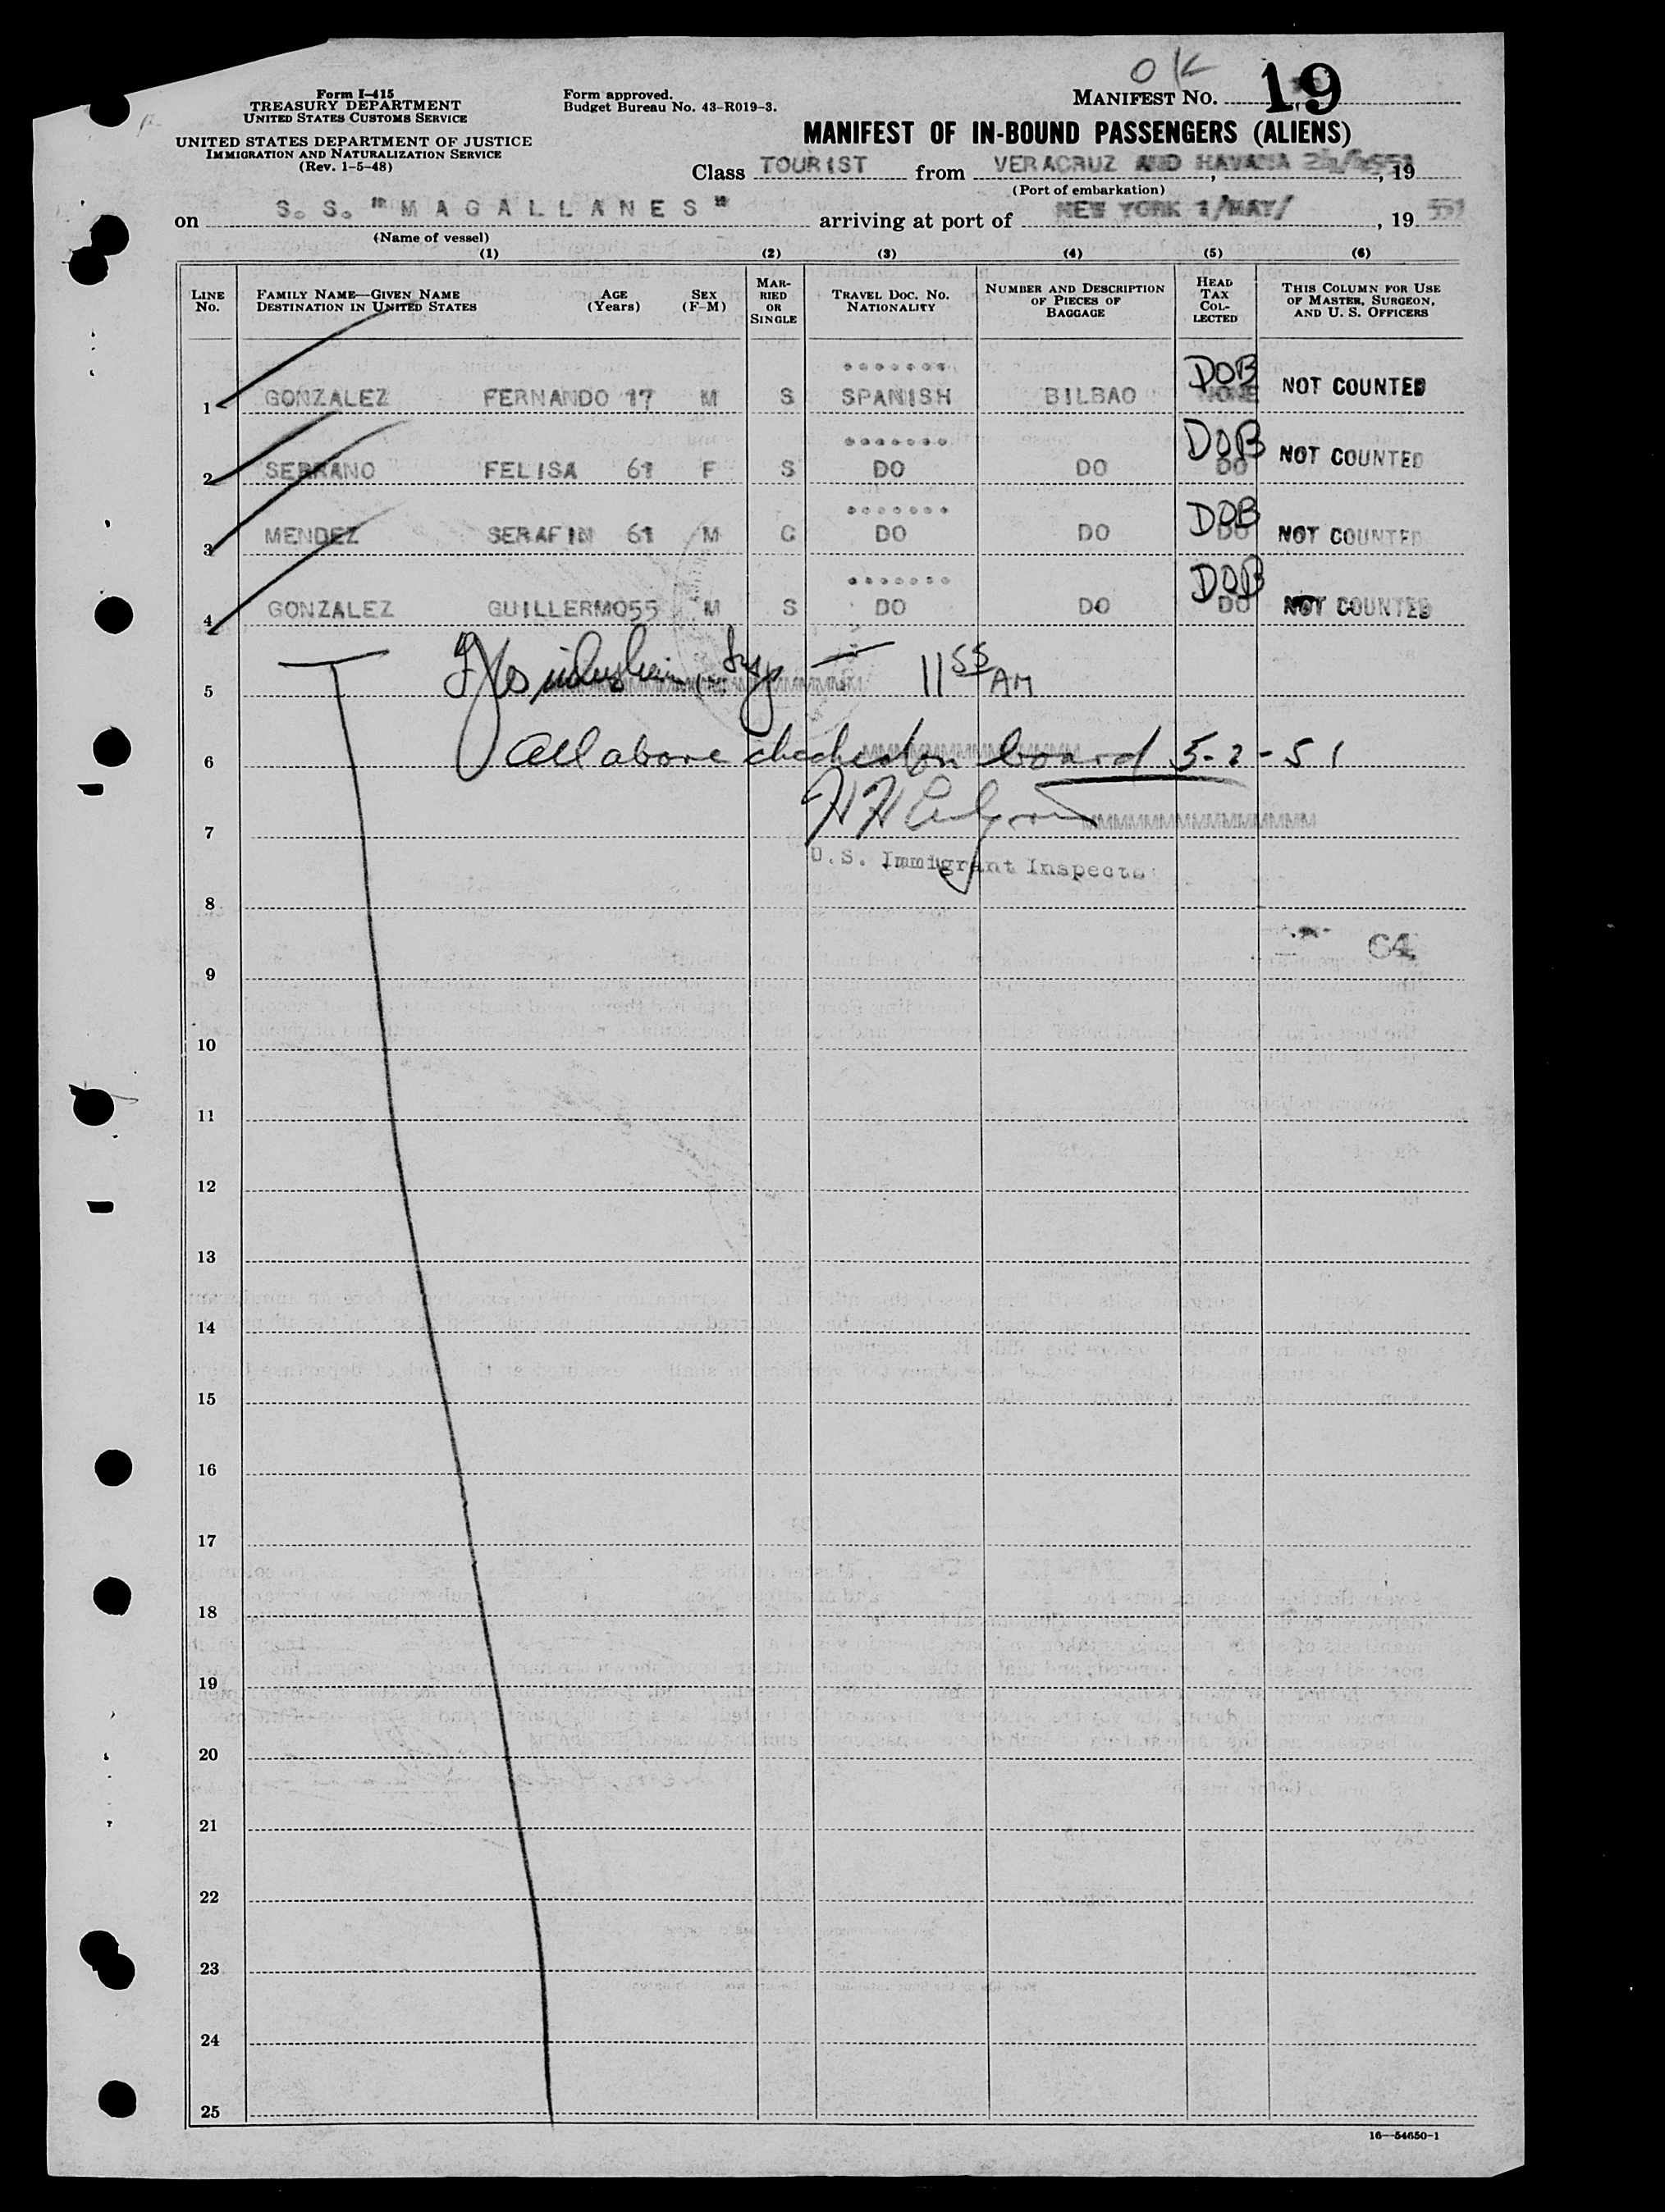 OK
Form I-415
TREASURY DEPARTMENT
UNITED STATES CUSTOMS SERVICE
UNITED STATES DEPARTMENT OF JUSTICE
IMMIGRATION AND NATURALIZATION SERVICE
(Rev. 1-5-48)
Form approved.
Budget Bureau No. 43-R019-3.
MANIFEST NO. 19
MANIFEST OF IN-BOUND PASSENGERS (ALIENS)
Class TOURIST from VERACRUZ AND HAVANA , 19
(Port of embarkation)
on S. S. "MAGALLANES" arriving at port of NEW YORK 1/MAY/ , 19
(Name of vessel)
(1) (2) (3) (4) (5) (6)
LINE No.
FAMILY NAME—GIVEN NAME AGE (Years) SEX (F-M)
DESTINATION IN UNITED STATES
MARRIED OR SINGLE
TRAVEL DOC. NO. NATIONALITY
NUMBER AND DESCRIPTION OF PIECES OF BAGGAGE
HEAD TAX COLLECTED
THIS COLUMN FOR USE OF MASTER, SURGEON, AND U. S. OFFICERS
1 GONZALEZ FERNANDO 17 M S SPANISH BILBAO NONE DOB NOT COUNTED
2 SERRANO FELISA 61 F S DO DO DO DOB NOT COUNTED
3 MENDEZ SERAFIN 61 M C DO DO DO DOB NOT COUNTED
4 GONZALEZ GUILLERMO 55 M S DO DO DO DOB NOT COUNTED
5 11 55 AM
6 All above checked on board 5-2-51
7
U.S. Immigrant Inspector
8
C4
9
10
11
12
13
14
15
16
17
18
19
20
21
22
23
24
25
16—54650-1